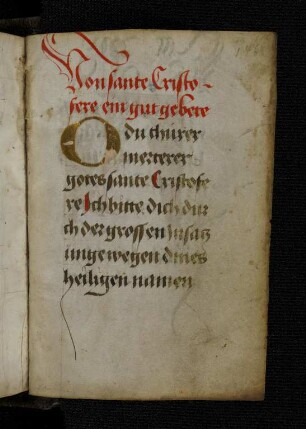 Von sante Cristo-
fere ein gut gebete
O du thurer
merterer
gotes sante Cristofe
re Ich bitte dich dur
ch der grossen
heiligen namen